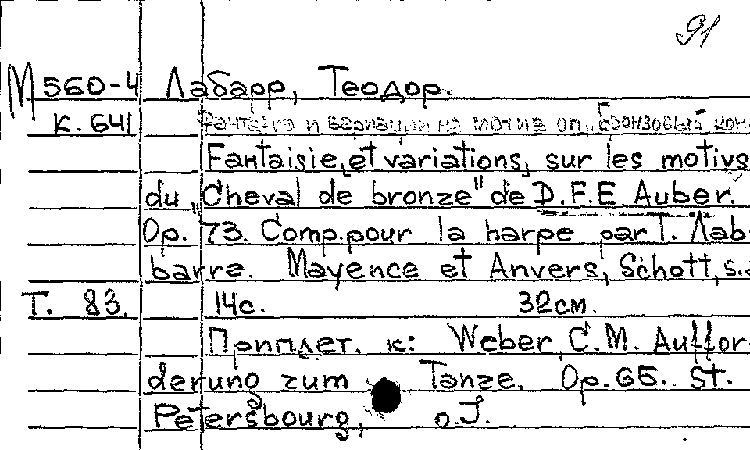 91
М 560-4 Лабарр, Теодор.
К. 641 Фантазия и вариации на мотив оп. „Бронзовый кон
Fantaisie et variations, sur les motivs
du „Cheval de bronze" de D.F.E Auber.
Op. 73. Comp. pour la harpe par T. Лаb-
barre. Mayence et Anvers, Schott, s.a.
Т. 83. 14с. 32см.
Приплет. к: Weber, C.M. Auffor-
derung zum Tanze. Op. 65. St.
Petersbourg, o.J.